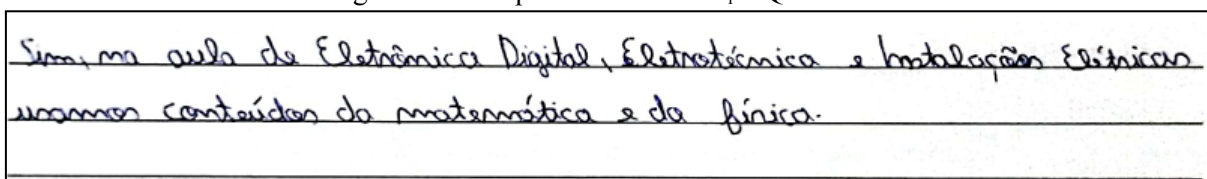 Sim, na aula de Eletrônica Digital, Eletrotécnica e Instalações Elétricas
usamos conteúdos da matemática e da física.